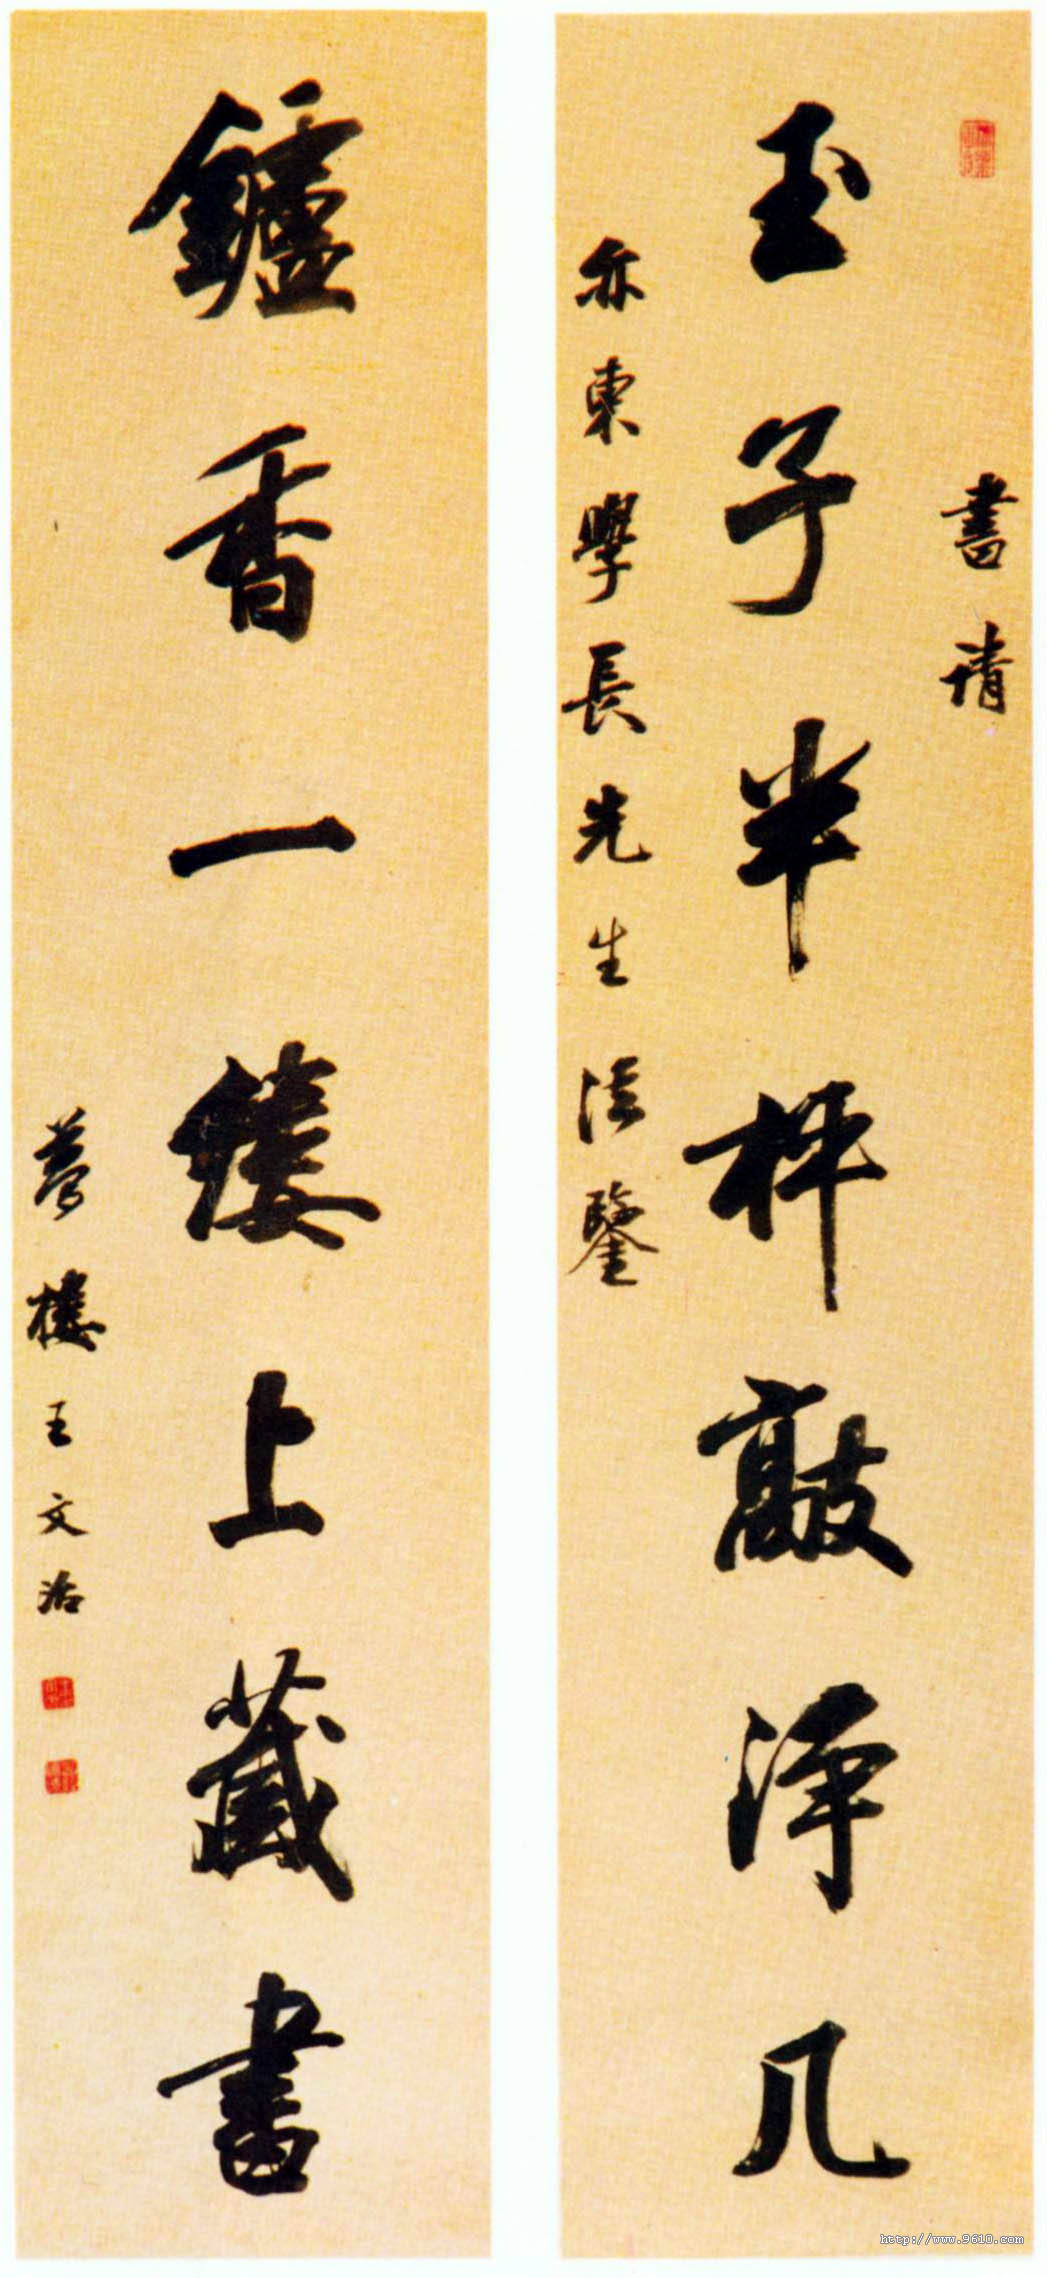 書請
玉子半枰敲淨几
亦東學長先生法鑒
鑪香一縷上藏書
夢樓王文治
http://www.9610.com